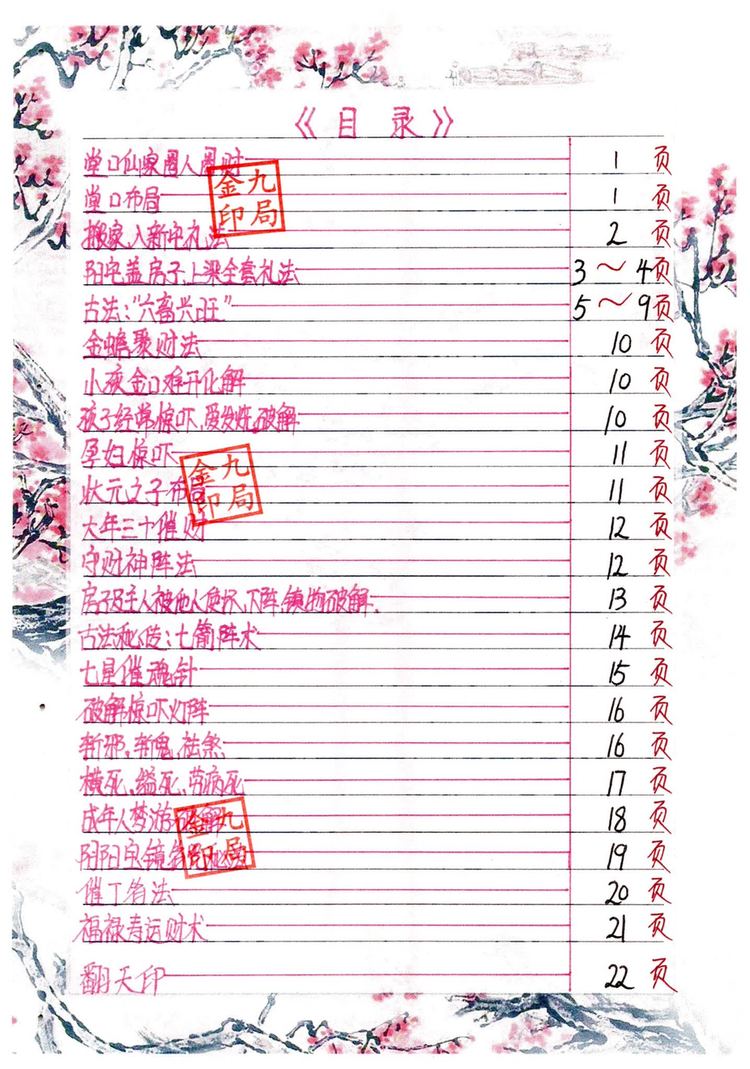 《目录》
堂口仙家圈人圈财 1 页
堂口布局 1 页
搬家入新宅礼法 2 页
阳宅盖房子上梁全套礼法 3～4页
古法："六畜兴旺" 5～9页
金蟾聚财法 10 页
小孩金口难开化解 10 页
孩子经常惊吓、爱发烧破解 10 页
孕妇惊吓 11 页
状元之子布局 11 页
大年三十催财 12 页
守财神阵法 12 页
房子及主人被他人使坏、下阵、镇物破解、 13 页
古法秘传：七箭阵术 14 页
七星催魂针 15 页
破解惊吓灯阵 16 页
斩邪、斩鬼、祛煞 16 页
横死、缢死、劳病死 17 页
成年人梦游破解 18 页
阴阳宝镜 19 页
催丁ㄅ法 20 页
福禄寿运财术 21 页
翻天印 22 页
金九印局
金九印局
金九印局